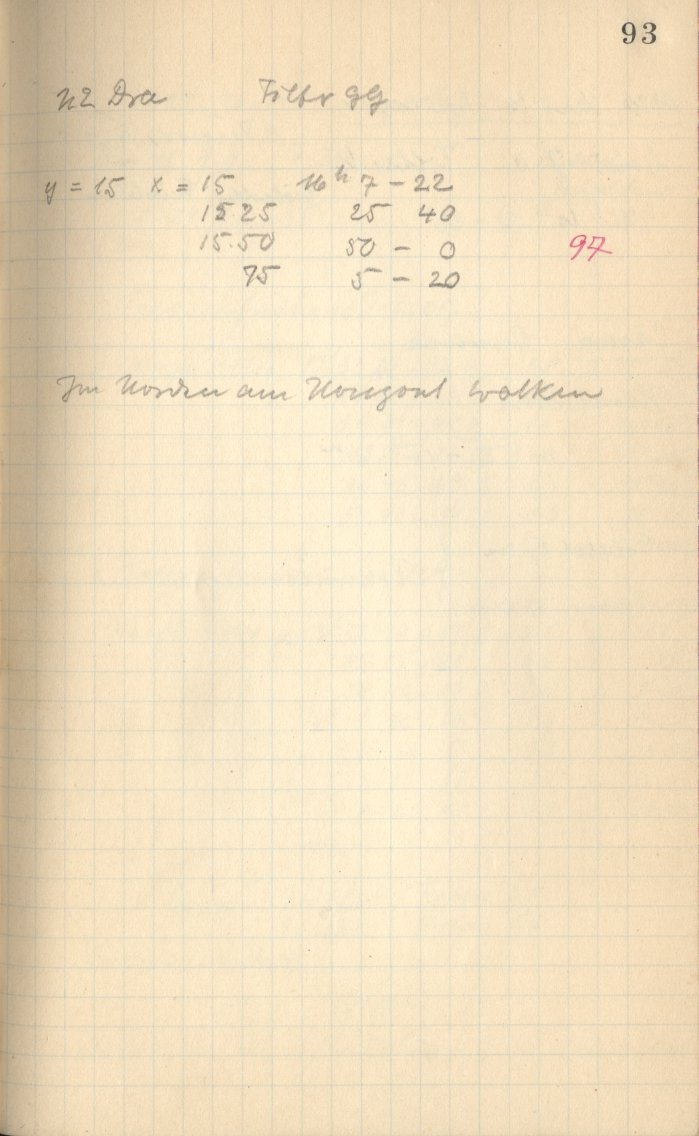 93
Dra Filter GG
y = 15 x = 15 16h 7 – 22
15.25 25 40
15.50 50 – 0
97
75 5 – 20
Im Norden am Horizont Wolken